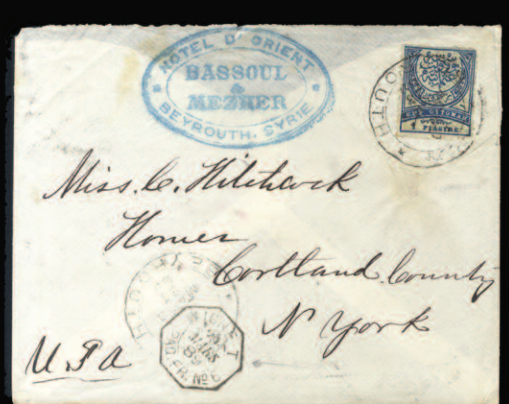 HOTEL D'ORIENT
BASSOUL
&
MEZHER
BEYROUTH, SYRIE
1 PIASTRE
Miss. C. Hitchcock
Homer
Cortland County
N York
U.S.A
MARS
PAQ. FR. No 6